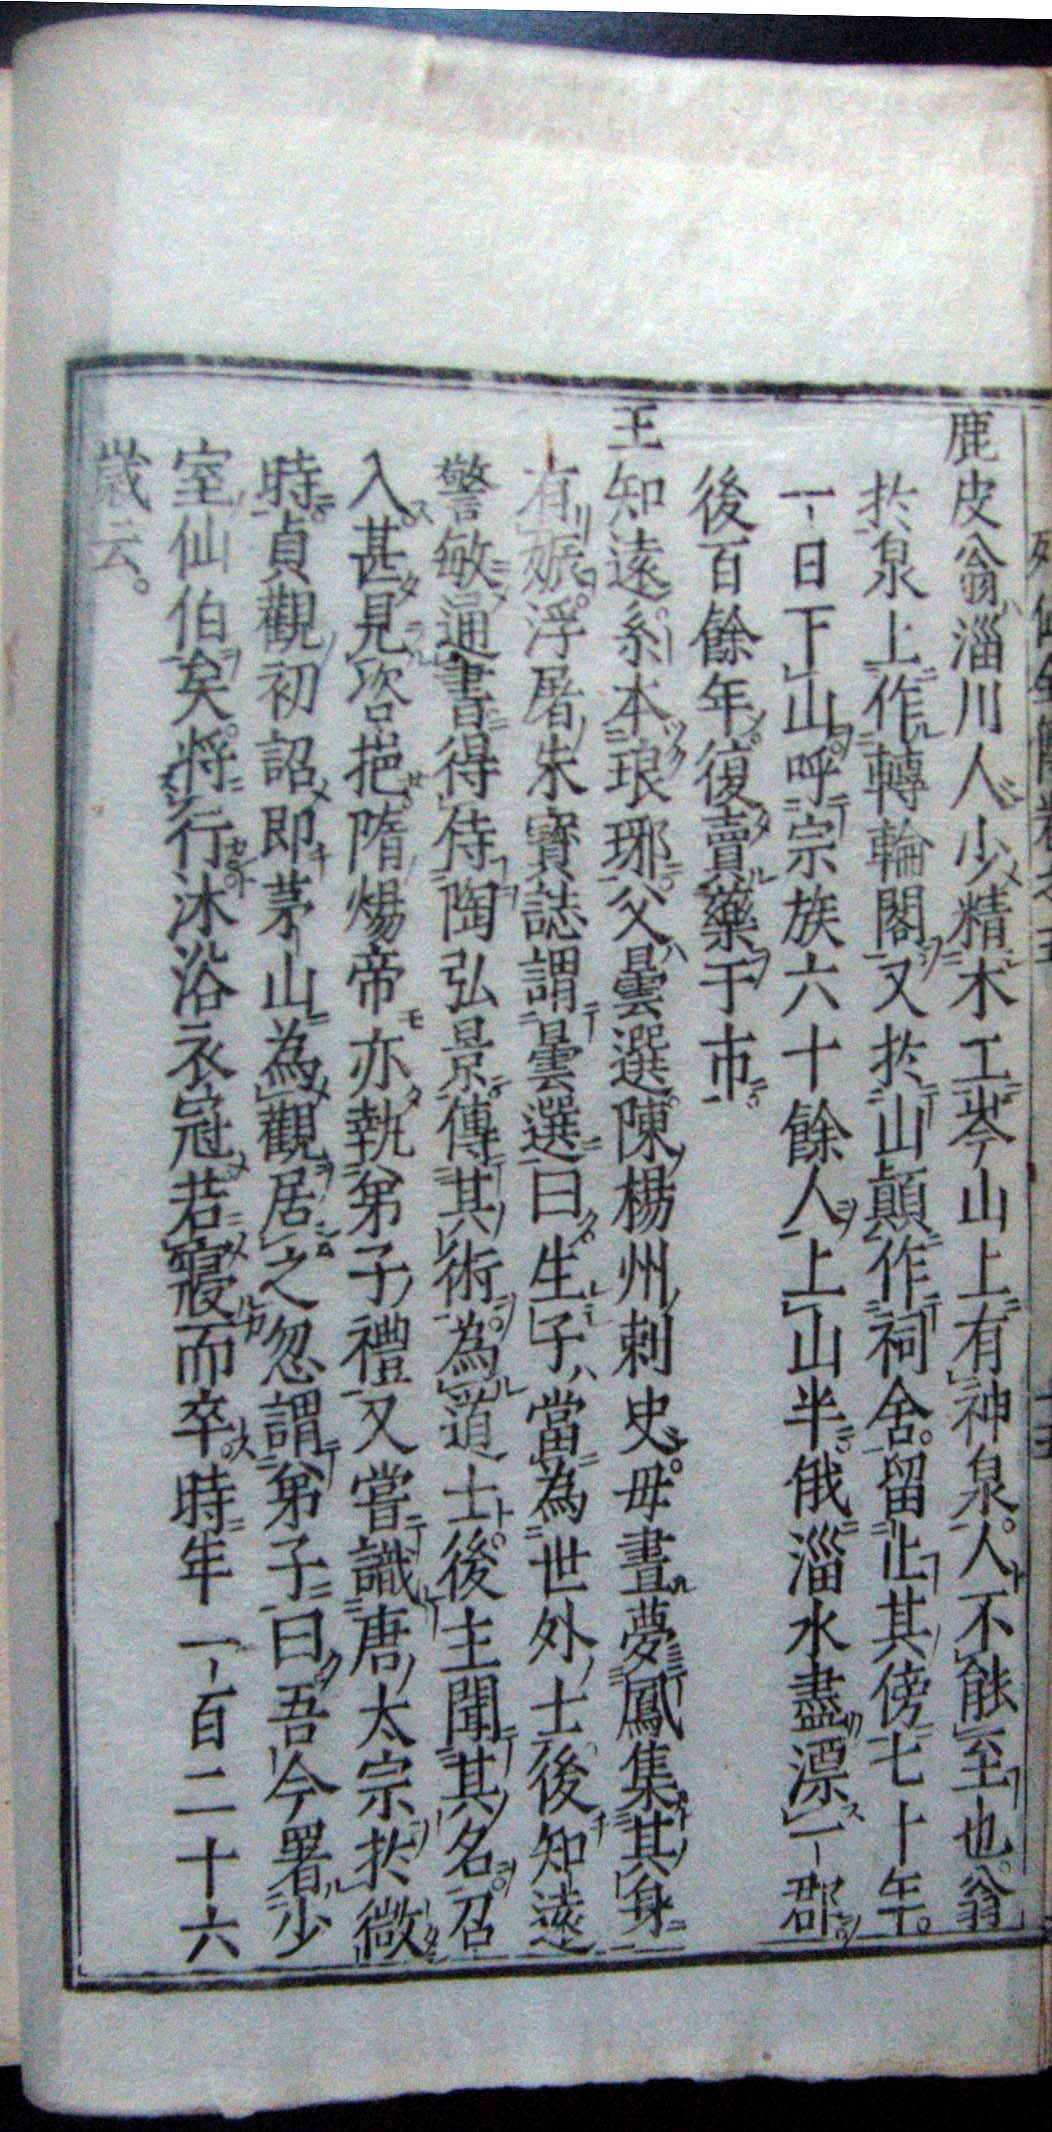 鹿皮翁淄川人少精木工岑山上有神泉人不能至也翁
於泉上作轉輪閣又於山顛作祠舍留止其傍七十年
一日下山呼宗族六十餘人上山半俄淄水盡漂一郡
後百餘年復賣藥于市
王知遠系本琅琊父曇選陳楊州刺史母晝夢鳳集其身
有娠浮屠朱寶誌謂曇選曰生子當為世外士後知遠
警敏通書得侍陶弘景傳其術為道士後主聞其名召
入甚見咨挹隋煬帝亦執弟子禮又嘗識唐太宗於微
時貞觀初詔即茅山為觀居之忽謂弟子曰吾今署少
室仙伯矣將行沐浴衣冠若寢而卒時年一百二十六
歲云